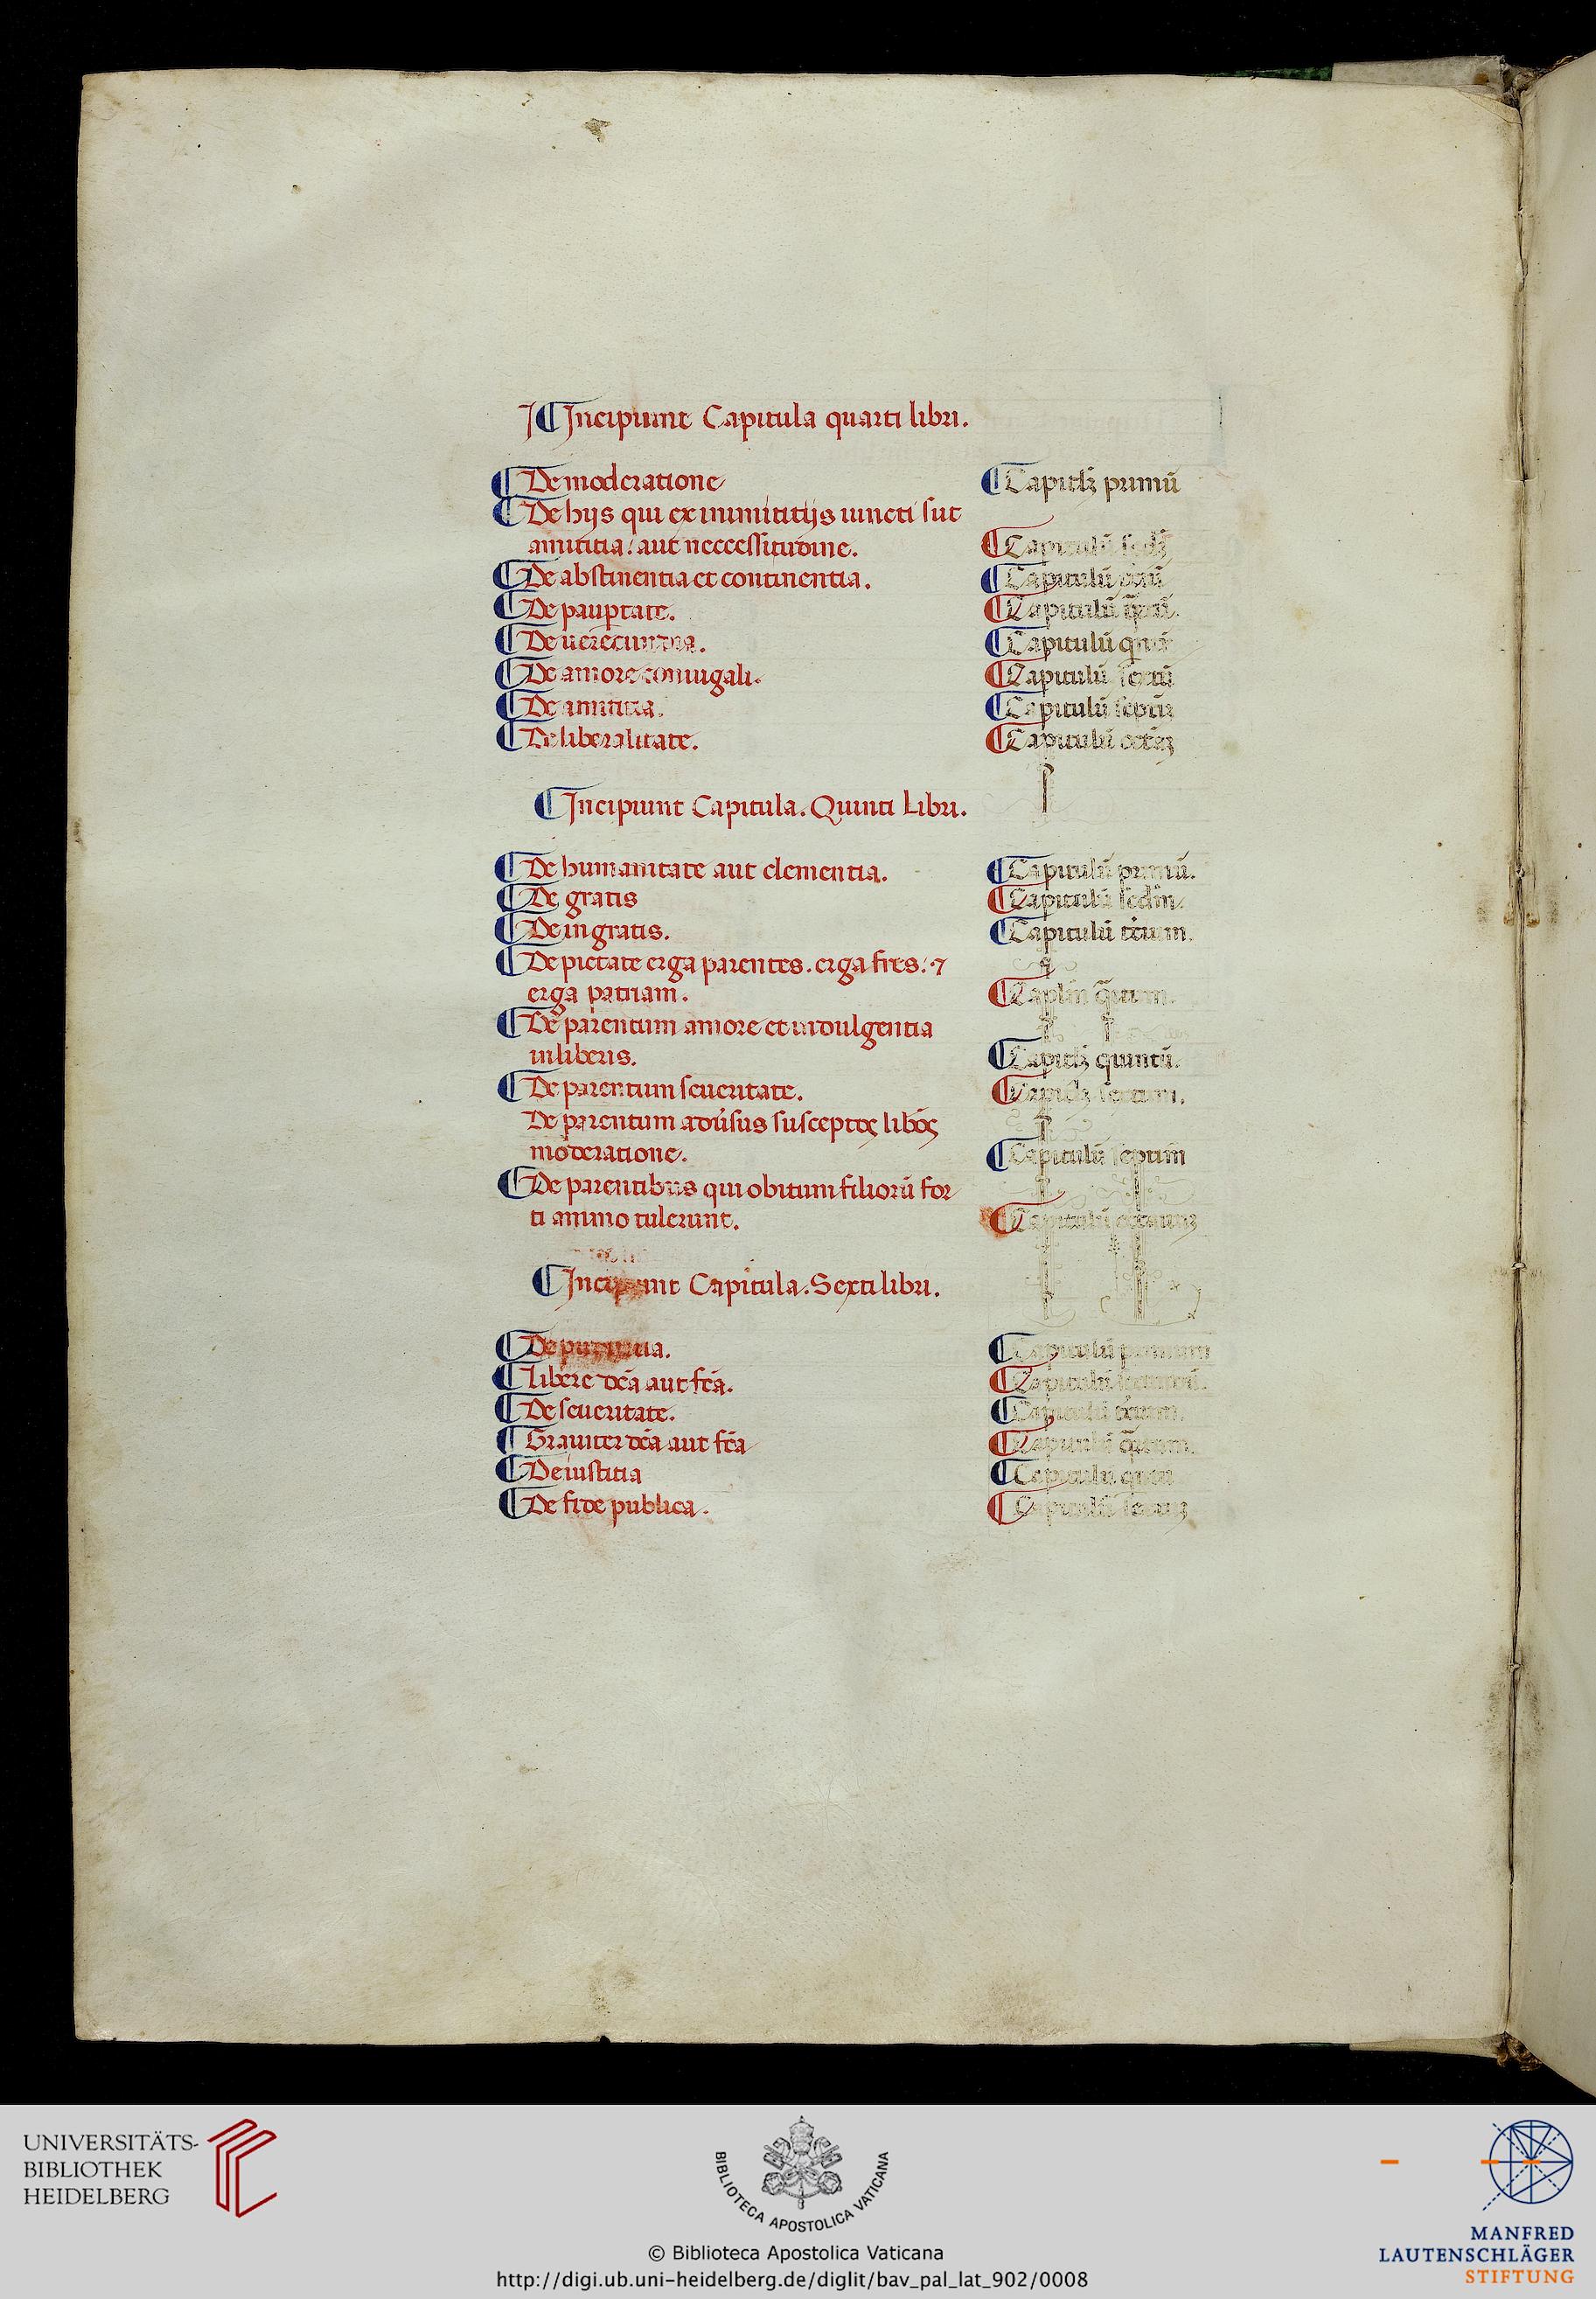 ¶ Incipiunt Capitula quarti libri.
¶ De moderatione ¶ Capitlȝ primū
¶ De hijs qui ex inimicitijs iuncti sūt
amicitia / aut neccessitudine. ¶ Capitulū scdȝ
¶ De abstinentia et continentia. ¶ Capitulū tciū
¶ De paup̱tate. ¶ Capitulū q̄rtū.
¶ De uerecundia. ¶ Capitulū
¶ De amore coniugali. ¶ Capitulū sextū
¶ De amicitia. ¶ Capitulū septīȝ
¶ De liberalitate. ¶ Capitulū
¶ Incipiunt Capitula. Quinti Libri.
¶ De humanitate aut clementia. ¶ Capitulū primū.
¶ De gratis ¶ Capitulū secdm̄.
¶ De ingratis. ¶ Capitulū tcium.
¶ De pietate erga parentes. erga fr̄es. ⁊
erga patriam. ¶ Caplm̄ q̄rtum.
¶ De parentum amore et indulgentia
in liberis. ¶ Capitlȝ quintū.
¶ De parentum seueritate. ¶ Capitlȝ sextum.
De parentum adūsus susceptoꝝ libōꝝ
moderatione. ¶ Capitulū septim̄
¶ De parentibus qui obitum filiorū for
ti animo tulerunt. ¶ Capitulū octauuȝ
¶ Incipiunt Capitula. Sexti libri.
¶ De pudicitia. ¶ Capitulū primum
¶ Libere dc̄a aut fc̄a. ¶ Capitulū secundū.
¶ De seueritate. ¶ Capitulū tcium.
¶ Grauiter dc̄a aut fc̄a ¶ Capitulū q̄rtum.
¶ De iustitia ¶ Capitulū
¶ De fide publica. ¶ Capitulū sextuȝ
UNIVERSITÄTS-
BIBLIOTHEK
HEIDELBERG
BIBLIOTECA APOSTOLICA VATICANA
© Biblioteca Apostolica Vaticana
http://digi.ub.uni-heidelberg.de/diglit/bav_pal_lat_902/0008
MANFRED
LAUTENSCHLÄGER
STIFTUNG